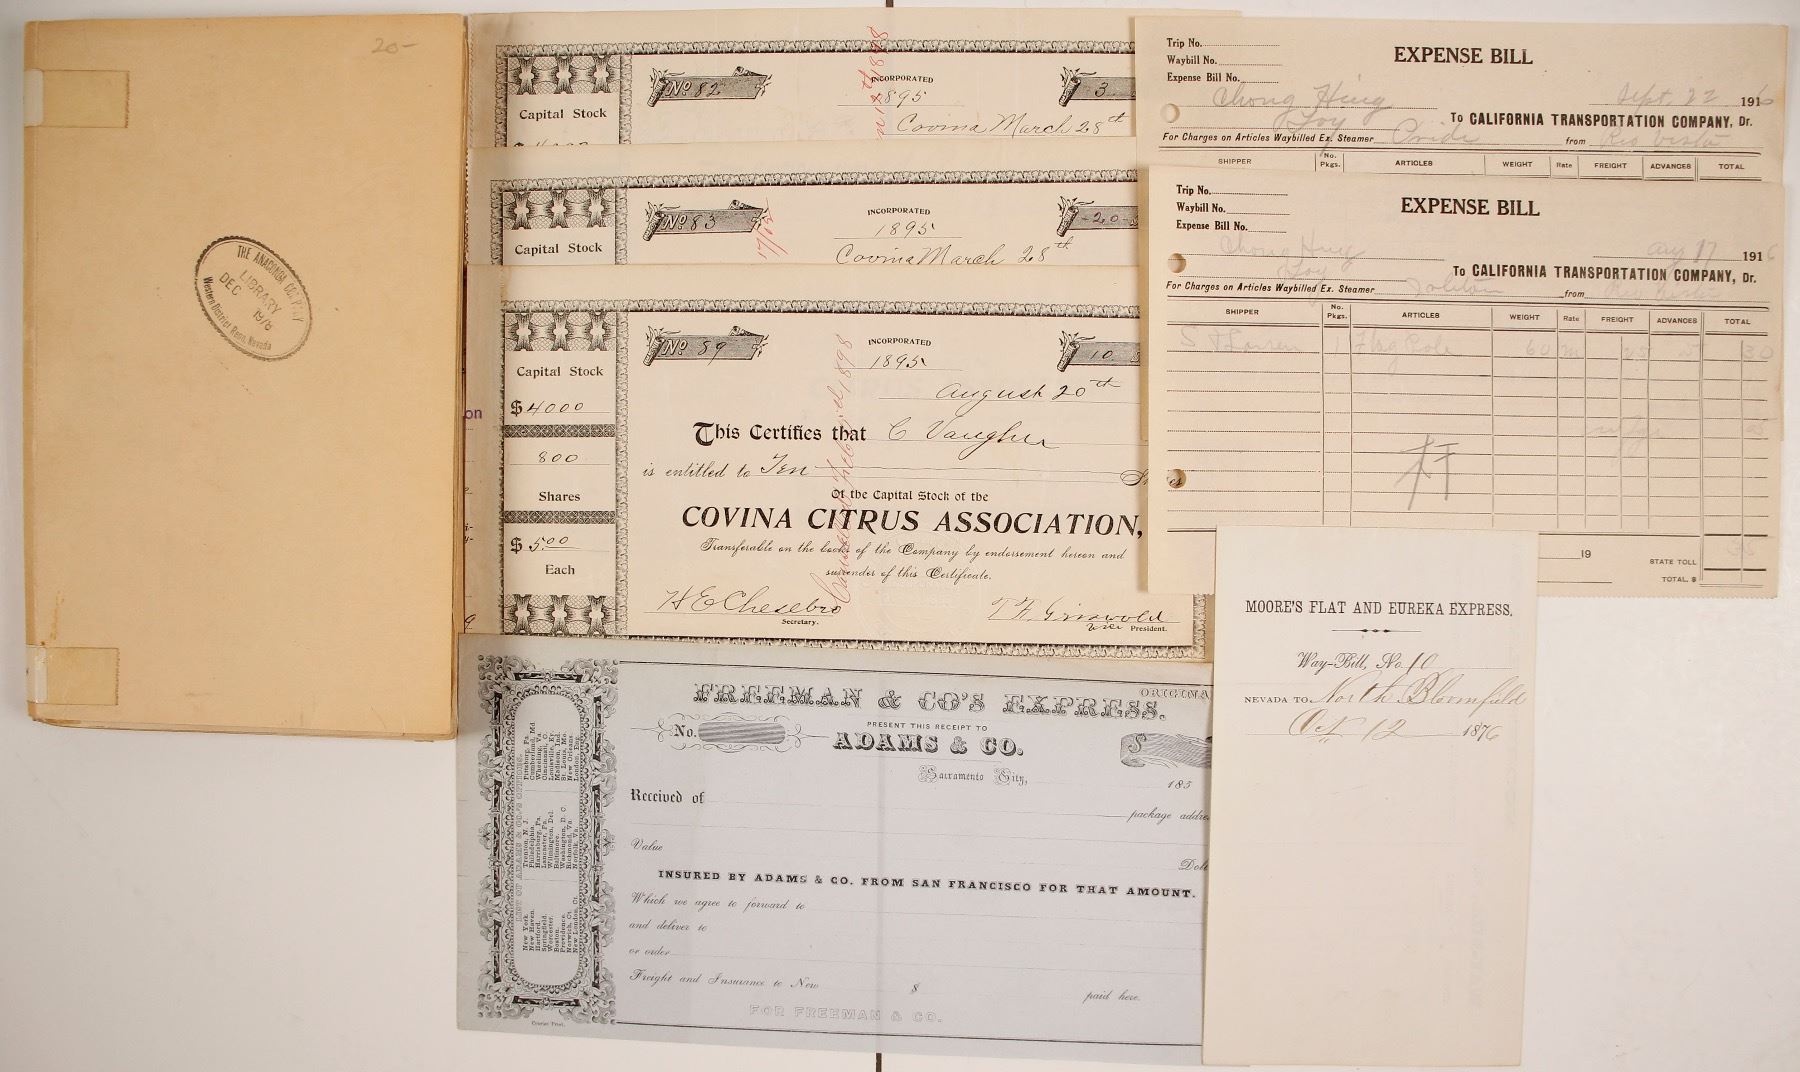 20-
THE ANACONDA COMPANY
LIBRARY
DEC 1976
Western District Reno, Nevada
on
Capital Stock
No 82
INCORPORATED
1895
3
Covina March 28th
Capital Stock
No 83
INCORPORATED
1895
-20-
Covina March 28th
Capital Stock
$4000
800
Shares
$5.00
Each
No 89
INCORPORATED
1895
10
August 20th
This Certifies that C Vaughn
is entitled to Ten
Of the Capital Stock of the
COVINA CITRUS ASSOCIATION,
Transferable on the books of the Company by endorsement hereon and
surrender of this Certificate.
H E Chesebro
Secretary.
T. F. Griswold
Vice President.
1898
Trip No.
Waybill No.
Expense Bill No.
EXPENSE BILL
Chong Hing
Sept. 22 1916
Loy
To CALIFORNIA TRANSPORTATION COMPANY, Dr.
For Charges on Articles Waybilled Ex. Steamer Pride from Rio Vista
SHIPPER No. Pkgs. ARTICLES WEIGHT Rate FREIGHT ADVANCES TOTAL
Trip No.
Waybill No.
Expense Bill No.
EXPENSE BILL
Chong Hing
Aug 17 1916
Loy
To CALIFORNIA TRANSPORTATION COMPANY, Dr.
For Charges on Articles Waybilled Ex. Steamer from Rio Vista
SHIPPER No. Pkgs. ARTICLES WEIGHT Rate FREIGHT ADVANCES TOTAL
Larsen 1 Flag Pole 60 m 25 5 30
19
STATE TOLL
TOTAL, $
MOORE'S FLAT AND EUREKA EXPRESS.
Way-Bill, No. 10
NEVADA TO North Bloomfield
Oct 12 1876
FREEMAN & CO'S EXPRESS.
ORIGINA
No.
PRESENT THIS RECEIPT TO
ADAMS & CO.
$
Sacramento City, 185
Received of
package addre
Value
Doll
INSURED BY ADAMS & CO. FROM SAN FRANCISCO FOR THAT AMOUNT.
Which we agree to forward to
and deliver to
or order
Freight and Insurance to New $ paid here.
FOR FREEMAN & CO.
LIST OF ADAMS & CO.'S OFFICES.
New York.
New Haven.
Hartford.
Springfield.
Worcester.
Boston.
Providence.
Norwich, Ct.
New London, Ct.
Trenton, N. J.
Philadelphia.
Harrisburg, Pa.
Lancaster, Pa.
Wilmington, Del.
Baltimore.
Washington, D. C.
Richmond, Va.
Norfolk, Va.
Pittsburg, Pa.
Cumberland, Md
Wheeling, Va.
Cincinnati, O.
Louisville, Ky.
Madison, Ind.
St. Louis, Mo.
New Orleans.
London, Eng.
Courier Print.